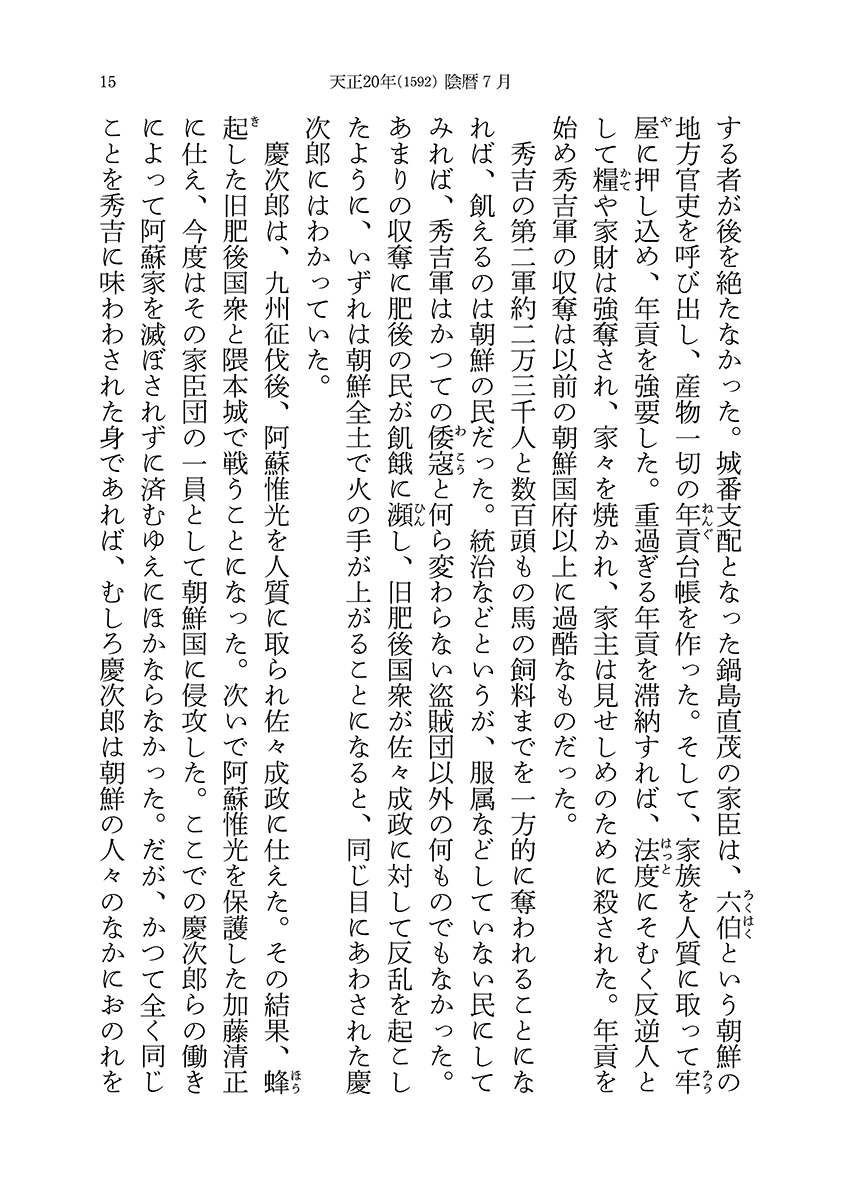 15
天正20年(1592) 陰暦7月
する者が後を絶たなかった。城番支配となった鍋島直茂の家臣は、六伯という朝鮮の
ろくはく
地方官吏を呼び出し、産物一切の年貢台帳を作った。そして、家族を人質に取って牢
ねんぐ
ろう
屋に押し込め、年貢を強要した。重過ぎる年貢を滞納すれば、法度にそむく反逆人と
や
はっと
して糧や家財は強奪され、家々を焼かれ、家主は見せしめのために殺された。年貢を
かて
始め秀吉軍の収奪は以前の朝鮮国府以上に過酷なものだった。
秀吉の第二軍約二万三千人と数百頭もの馬の飼料までを一方的に奪われることにな
れば、飢えるのは朝鮮の民だった。統治などというが、服属などしていない民にして
みれば、秀吉軍はかつての倭寇と何ら変わらない盗賊団以外の何ものでもなかった。
わこう
あまりの収奪に肥後の民が飢餓に瀕し、旧肥後国衆が佐々成政に対して反乱を起こし
ひん
たように、いずれは朝鮮全土で火の手が上がることになると、同じ目にあわされた慶
次郎にはわかっていた。
慶次郎は、九州征伐後、阿蘇惟光を人質に取られ佐々成政に仕えた。その結果、蜂
ほう
起した旧肥後国衆と隈本城で戦うことになった。次いで阿蘇惟光を保護した加藤清正
き
に仕え、今度はその家臣団の一員として朝鮮国に侵攻した。ここでの慶次郎らの働き
によって阿蘇家を滅ぼされずに済むゆえにほかならなかった。だが、かつて全く同じ
ことを秀吉に味わわされた身であれば、むしろ慶次郎は朝鮮の人々のなかにおのれを